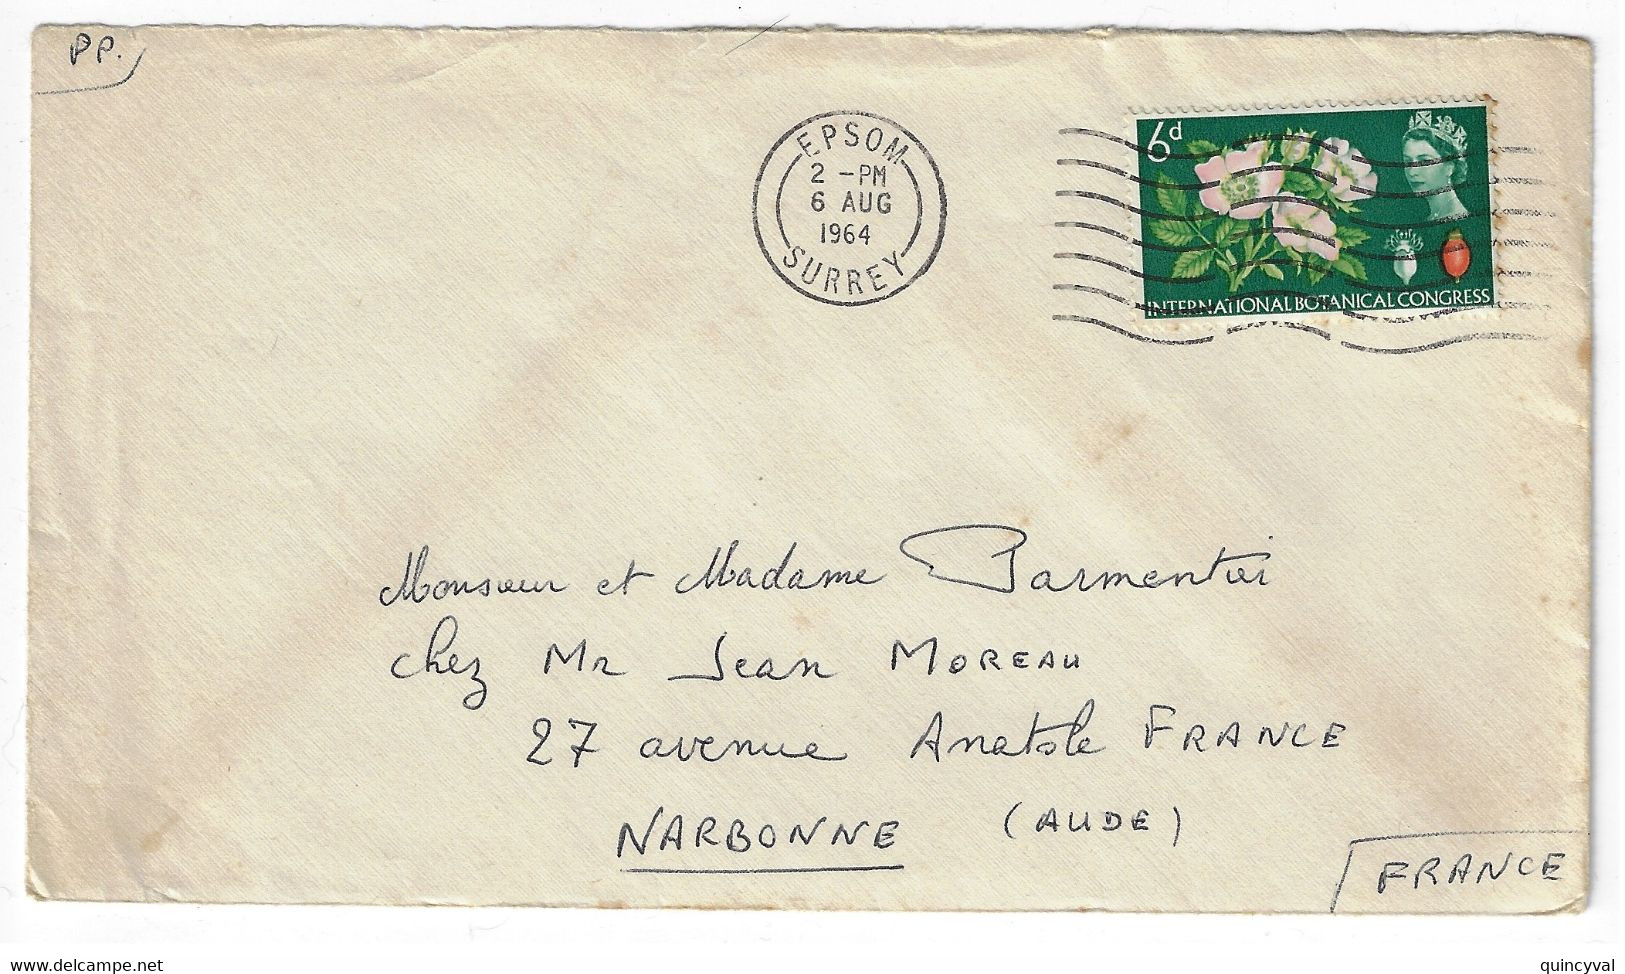 PP.
EPSOM
2 - PM
6 AUG
1964
SURREY
6d
INTERNATIONAL BOTANICAL CONGRESS
Monsieur et Madame Parmentier
chez Mr Jean MOREAU
27 avenue Anatole FRANCE
NARBONNE (AUDE)
FRANCE
www.delcampe.net
quincyval